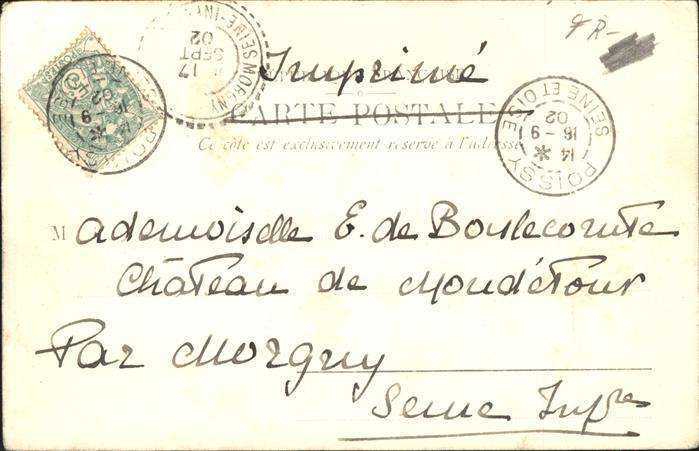 Imprimé
CARTE POSTALE
Ce côté est exclusivement réservé à l'adresse
MORGNY SEINE-INF
17
SEPT
02
POISSY SEINE ET OISE
14
16 - 9
02
POISSY
16 9
02
Mademoiselle E. de Boulecomte
Château de Mondétour
Par Morgny
Seine Infre